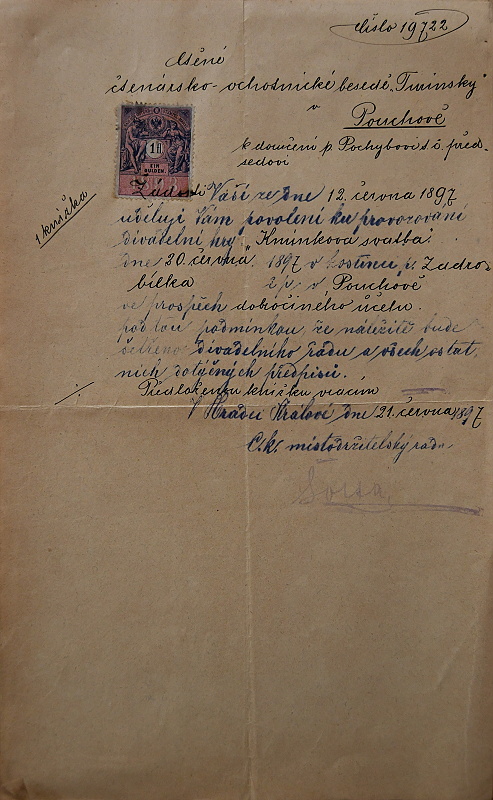 číslo 19722
Ctěné
čtenářsko-ochotnické besedě „Tminský"
v
Pouchově
k doručení p. Pochybovi t. č. před-
sedovi
1 knížka
1 fl
EIN
GULDEN
Žádosti Vaší ze dne 12. června 1897
uděluji Vám povolení ku provozování
divadelní hry „Kmínkova svatba"
dne 20. června 1897 v hostinci p. Zadro-
bílka v Pouchově
ve prospěch dobročinného účelu
pod tou podmínkou, že náležitě bude
šetřeno divadelního řádu a všech ostat
ních dotyčných předpisů.
Předloženou knížku vracím
V Hradci Králové dne 21. června 1897
C. k. místodržitelský rada